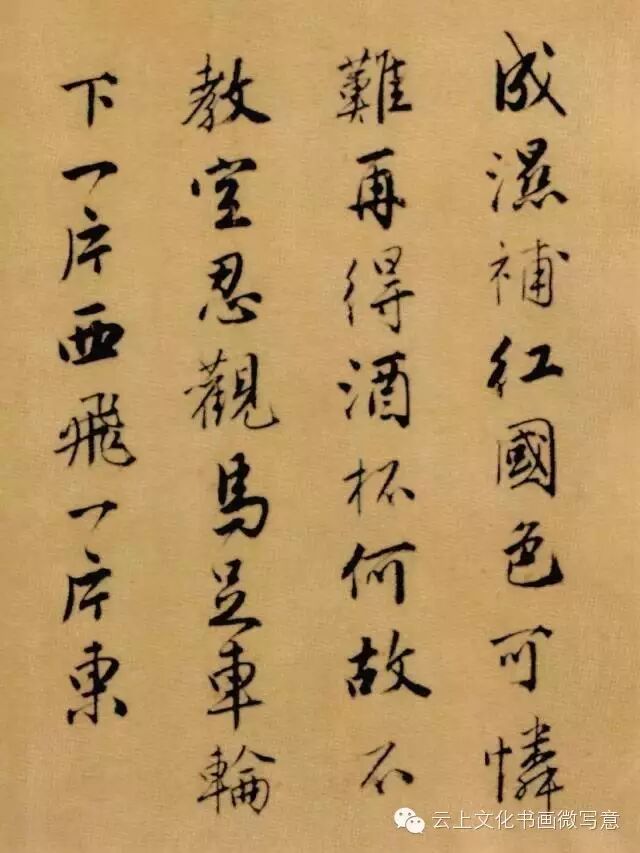 成濕補紅國色可憐
難再得酒杯何故不
教空忍觀馬足車輪
下一片西飛一片東
云上文化书画微写意